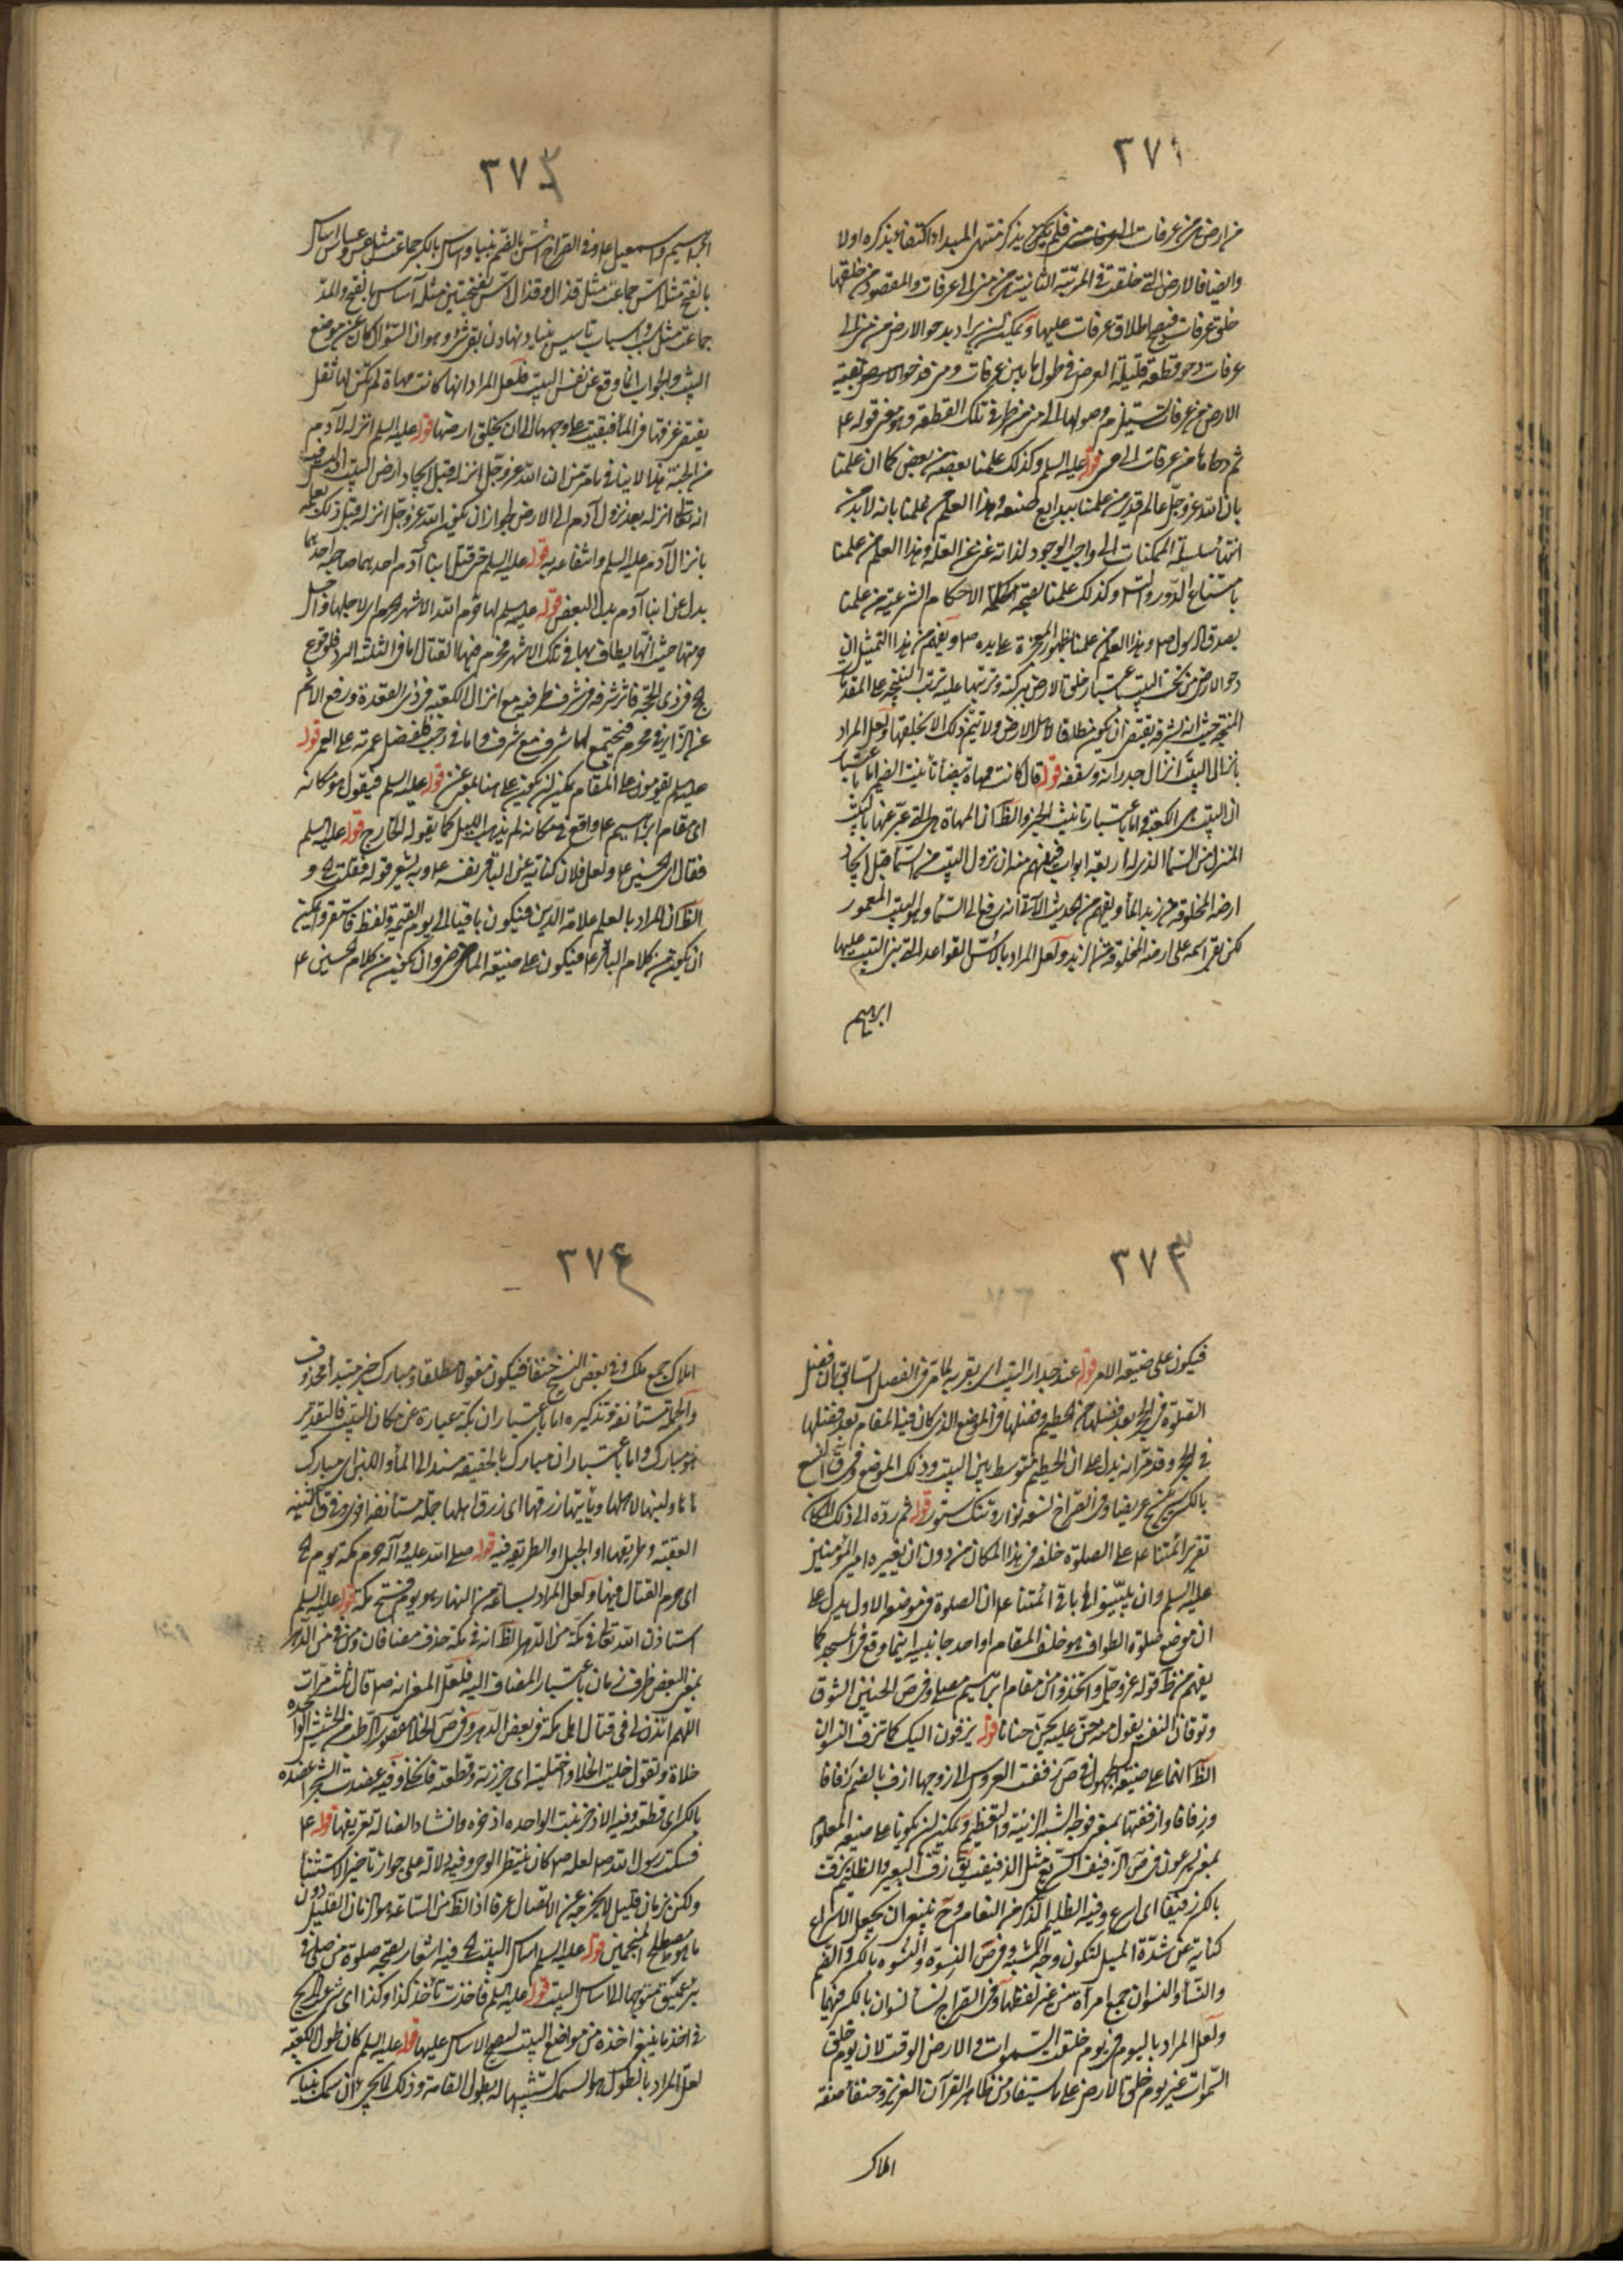 ٣٧١
من ارض من عرفات الى فلم يكن يذكر منتهى المبدا اكتفاء بذكره اولا
وايضا فالارض التى خلقت فى المرتبة الثانية من منى الى عرفات والمقصود من خلقها
خلق عرفات فيصح اطلاق عرفات عليها ويمكن ان يراد بدحو الارض من منى الى
عرفات دحو قطعة قليلة العرض فى طول ما بين عرفات و من فدحو الارض بقية
الارض من عرفات يستلزم وصولها الى منى من طرف تلك القطعة وهو معنى قوله ع
ثم دحاها من عرفات الى منى قوله عليه السلم وكذلك علمنا بعضه من بعض كما ان علمنا
بان الله عز وجل عالم قدير من علمنا ببدايع صنعه وهذا العلم من علمنا بانه لا بد من
انتهاء سلسلة الممكنات الى واجب الوجود لذاته غنى عن العلة وهذا العلم من علمنا
بامتناع الدور والتس وكذلك علمنا بصحة الاحكام الشرعية من علمنا
بصدق الرسول ص وهذا العلم من علمنا بظهور المعجزة على يده ص ويفهم من هذا التمثيل ان
دحو الارض من تحت البيت باعتبار خلق الارض ببركته وترتبها عليه ترتب النتيجة على المقدمات
المنتجة حيث ان لشرفه يقتضى ان يكون مطافا لاهل الارض ولا يتم ذلك الا بخلقها ولعل المراد
بانزال البيت انزال جدرانه وسقفه قوله قال كانت مهاة بيضاء تانيث الضمير اما باعتبار
ان البيت هى الكعبة واما باعتبار تانيث الخبر والظ ان المهاة هى التى عبر عنها بالبيت
المنزل من السماء الذى له اربعة ابواب فيفهم منه ان نزول البيت من السماء قبل ايجاد
ارضه المخلوقة من زبد الماء ويفهم من الحديث الآتى انه رفع الى السماء وهو البيت المعمور
لكن بقى اسمه على ارضه المخلوقة من الزبد ولعل المراد بالاس القواعد التى بنى البيت عليها
ابرهيم
٣٧٢
ابرهيم واسمعيل ع وفى القراح اس بالضم بنياد واساس بالكسر جماعت مثل عس وعساس اساس
بالفتح مثل اس جماعت مثل قذال وقذل اسس بفتحتين مثله آساس بالفتح والمد
جماعت مثل سبب واسباب تاسيس بنياد نهادن بقى شىء وهو ان السؤال كان عن موضع
البيت والجواب انما وقع عن نفس البيت فلعل المراد انها كانت مهاة لم يكن لها ثقل
يقتضى غرقها فى الماء فبقيت على وجهها الى ان يخلق ارضها قوله عليه السلم انزله لآدم
من الجنة هذا لا ينافى ما مر من ان الله عز وجل انزله قبل ايجاد ارض البيت
انه تعالى انزله بعد نزول آدم الى الارض لجواز ان يكون الله عز وجل انزله قبل ذلك لعلمه
بانزال آدم عليه السلم وانتفاعه به قوله عليه السلم حتى قتل ابنا آدم احدهما صاحبه احدهما
بدل عن ابنا آدم بدل البعض قوله عليه السلم لها حرم الله الاشهر الحرم اى لاجلها ولاجل
حرمتها حيث انها يطاف بها فى تلك الاشهر محرم فيها القتال اما فى الثلثة السرد فلوقوع
حج فى ذى الحجة فاثر شرفه فى شرف طرفيه مع انزال الكعبة فى ذى القعدة ورفع الاثم
عن الزاير فى محرم فيجتمع لها شرف مع شرف واما فى رجب فلفضل عمرته على العمر قوله
عليه السلم يقومون على المقام يمكن ان يكون على هنا بمعنى عن قوله عليه السلم فيقول هو مكانه
اى مقام ابراهيم ع واقع فى مكانه لم يذهب به السيل كما يقوله الخارج قوله عليه السلم
فقال لى الحسين ع ولعل فلان كناية عن الباقر نفسه ع وبه يشعر قوله فقلت له و
الظ ان المراد بالعلم علامة الدين فيكون باقيا الى يوم القيمة ولفظ فاستقروا يمكن
ان يكون من كلام الباقر ع فيكون على صيغة الماضى وان يكون من كلام الحسين ع
٣٧٣
فيكون على صيغة الامر قوله عند جدار البيت اى بقربه لما مر فى الفصل السابق بان فضل
الصلوة فى الحجر بعد فضلها فى الحطيم وفضلها فى الموضع الذى كان فيه المقام بعد فضلها
فى الحجر وقد مر انه يدل على ان الحطيم متوسط بين البيت وذلك الموضع وفى ق النسع
بالكسر سير ينسج عريضا وفى القراح نسعه نوار وتنگ ستور قوله ثم رده الى ذلك المكان
تقرير ائمتنا ع على الصلوة خلفه فى هذا المكان من دون ان يغيره امير المؤمنين
عليه السلم وان يبينوا له باقى ائمتنا ع ان الصلوة فى موضعه الاول يدل على
ان موضع صلوة الطواف هو خلف المقام او احد جانبيه اينما وقع فى المسجد كما
يفهم من ظ قوله عز وجل واتخذوا من مقام ابرهيم مصلى وفى ص الحنين الشوق
وتوقان النفس يقول منه حن عليه يحن حنانا قوله يزفون اليك كما تزف النسوان
الظ انهما على صيغة المجهول وفى ص زففت العروس الى زوجها ازف بالضم زفافا
وزفافا وازففتها بمعنى فوجه الشبه الزينة والتعظيم ويمكن ان يكونا على صيغة المعلوم
بمعنى يسرعون فى ص الزفيف السريع مثل الذفيف يق زف البعير والظليم يزف
بالكسر زفيفا اى اسرع وفيه الظليم الذكر من النعام وح ينبغى ان يجعل الاسراع
كناية عن شدة الميل لتكون وجه الشبه وفى ص النسوة والنسوة بالكسر والضم
والنساء والنسوان جمع امرأة من غير لفظها وفى القراح نساء نسوان بالكسر فيهما
ولعل المراد باليوم فى يوم خلقت السموات والارض الوقت لان يوم خلق
السموات غير يوم خلق الارض على ما يستفاد من ظاهر القرآن العزيز وحنفاء صفة
املاك
٣٧٤
املاك جمع ملك وفى بعض النسخ حنفا فيكون مفعولا مطلقا ومبارك خبر مبتدأ محذوف
والجملة مستأنفة وتذكيره اما باعتبار ان بكة عبارة عن مكان البيت فالتقدير
هو مبارك واما باعتبار ان مبارك بالحقيقة مسند الى الماء واللبن اى مبارك
ماءها ولبنها لاهلها ويأتيها رزقها اى رزق اهلها جملة مستأنفة اخرى وفى ق الثنية
العقبة وطريقها او الجبل او الطريقة فيه قوله صلى الله عليه وآله حرم مكة يوم
اى حرم القتال فيها ولعل المراد بساعة من النهار هو يوم فتح مكة قوله عليه السلم
استاذن الله تعالى فى مكة من الدهر الظ انه فى مكة حذف مضاف فان ومن فى من الدهر
بمعنى البعض ظرف زمان باعتبار المضاف اليه فلعل المعنى انه ص قال ثلث مرات
اللهم ائذن لى فى قتال اهل مكة فى بعض الدهر وفى ص الخلا مقصورا الرطب من الحشيش الواحدة
خلاة وتقول خليت الخلا واختليته اى جززته وقطعته فانخلى وفيه عضدت الشجر اعضده
بالكسر اى قطعته وفيه الاذخر نبت الواحده اذخره وانشاد الضالة تعريفها قوله ع
فسكت رسول الله ص لعله ص كان ينتظر الوحى وفيه دلالة على جواز تاخير الاستثناء
ولكن بزمان قليل لا يخرجه عن الاتصال عرفا اذ الظ من الساعة هو الزمان القليل دون
ما هو مصطلح المنجمين قوله عليه السلم اساس البيت فيه اشعار بصحة صلوة من صلى فى
بئر عميق متوجها الى اساس البيت قوله عليه السلم فاخذت تأخذ كذا وكذا اى شرع الريح
فى اخذ ما ينبغى اخذه من مواضع البيت ليصح الاساس عليها قوله عليه السلم كان طول الكعبة
لعل المراد بالطول هو السمك تشبيها له بطول القامة وذلك لان سمك بناء